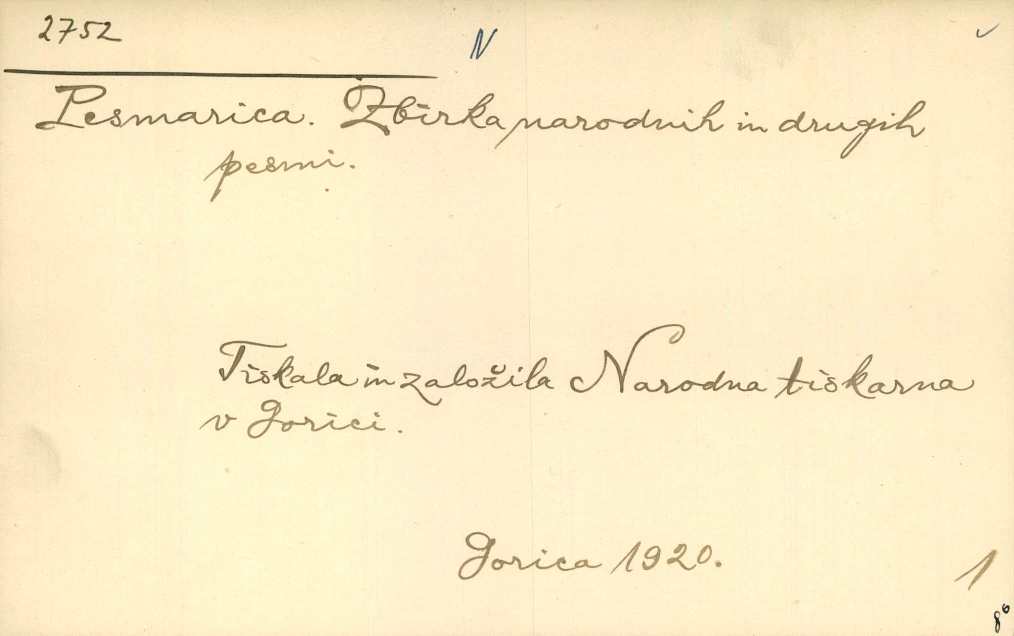 2752
N
Pesmarica. Zbirka narodnih in drugih
pesmi.
Tiskala in založila Narodna tiskarna
v Gorici.
Gorica 1920.
1
8°